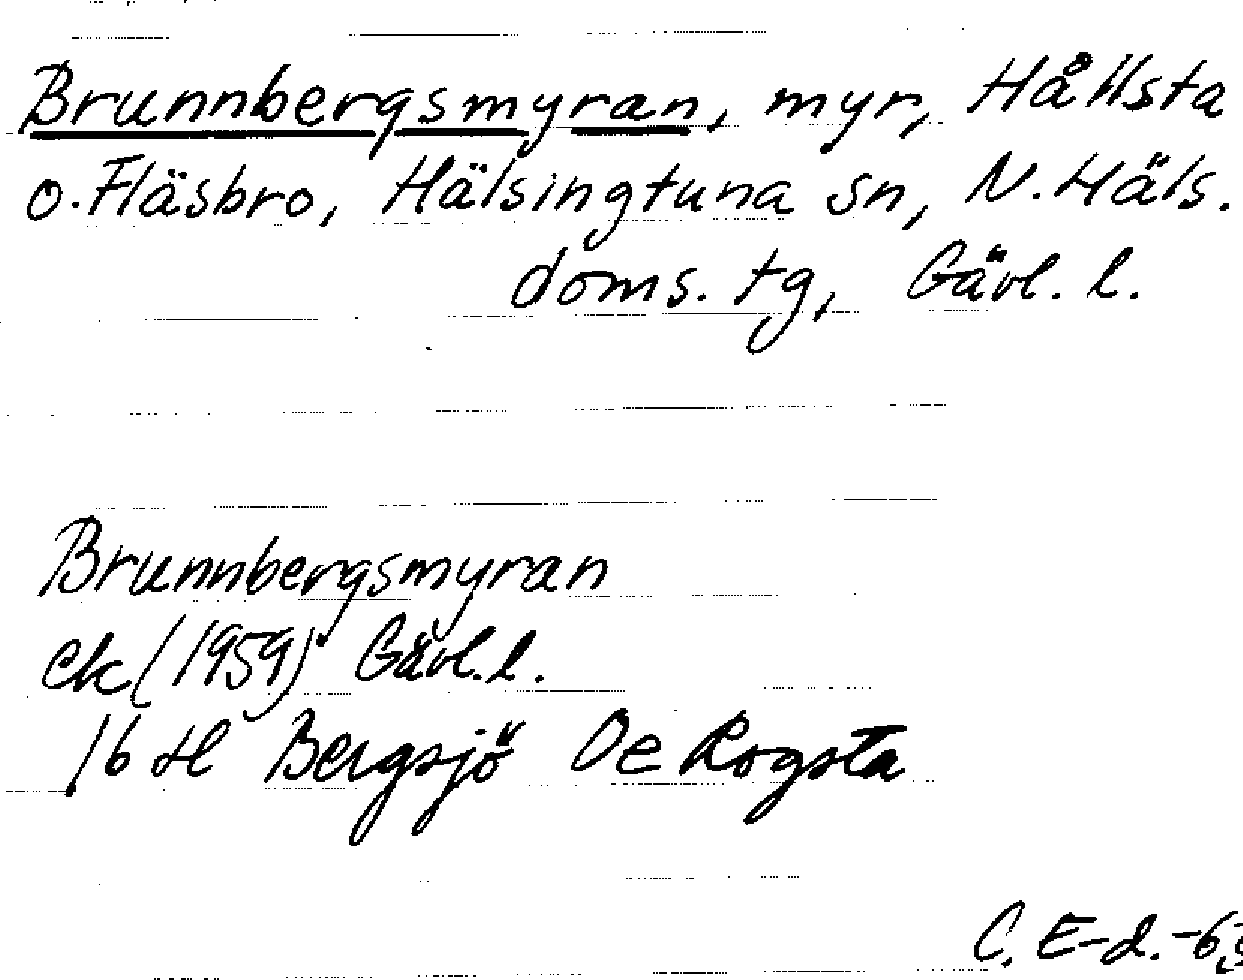 Brunnbergsmyran, myr, Hållsta
o. Fläsbro, Hälsingtuna sn, N. Häls.
doms. tg, Gävl. l.
Brunnbergsmyran
ek (1959) Gävl. l.
16 H Bergsjö Oe Rogsta
C. E-d.